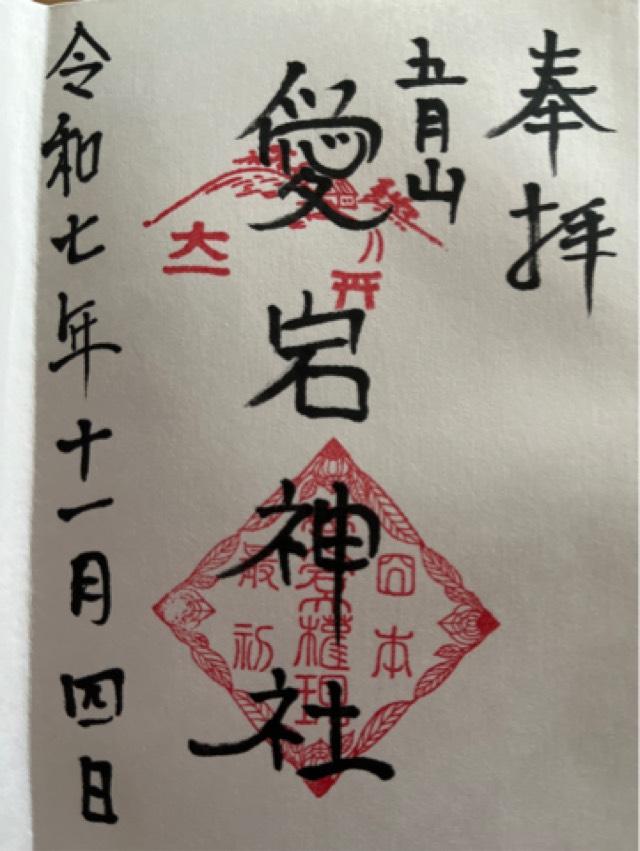 奉拝
五月山
愛宕神社
令和七年十一月四日
大
日本
權現
最初